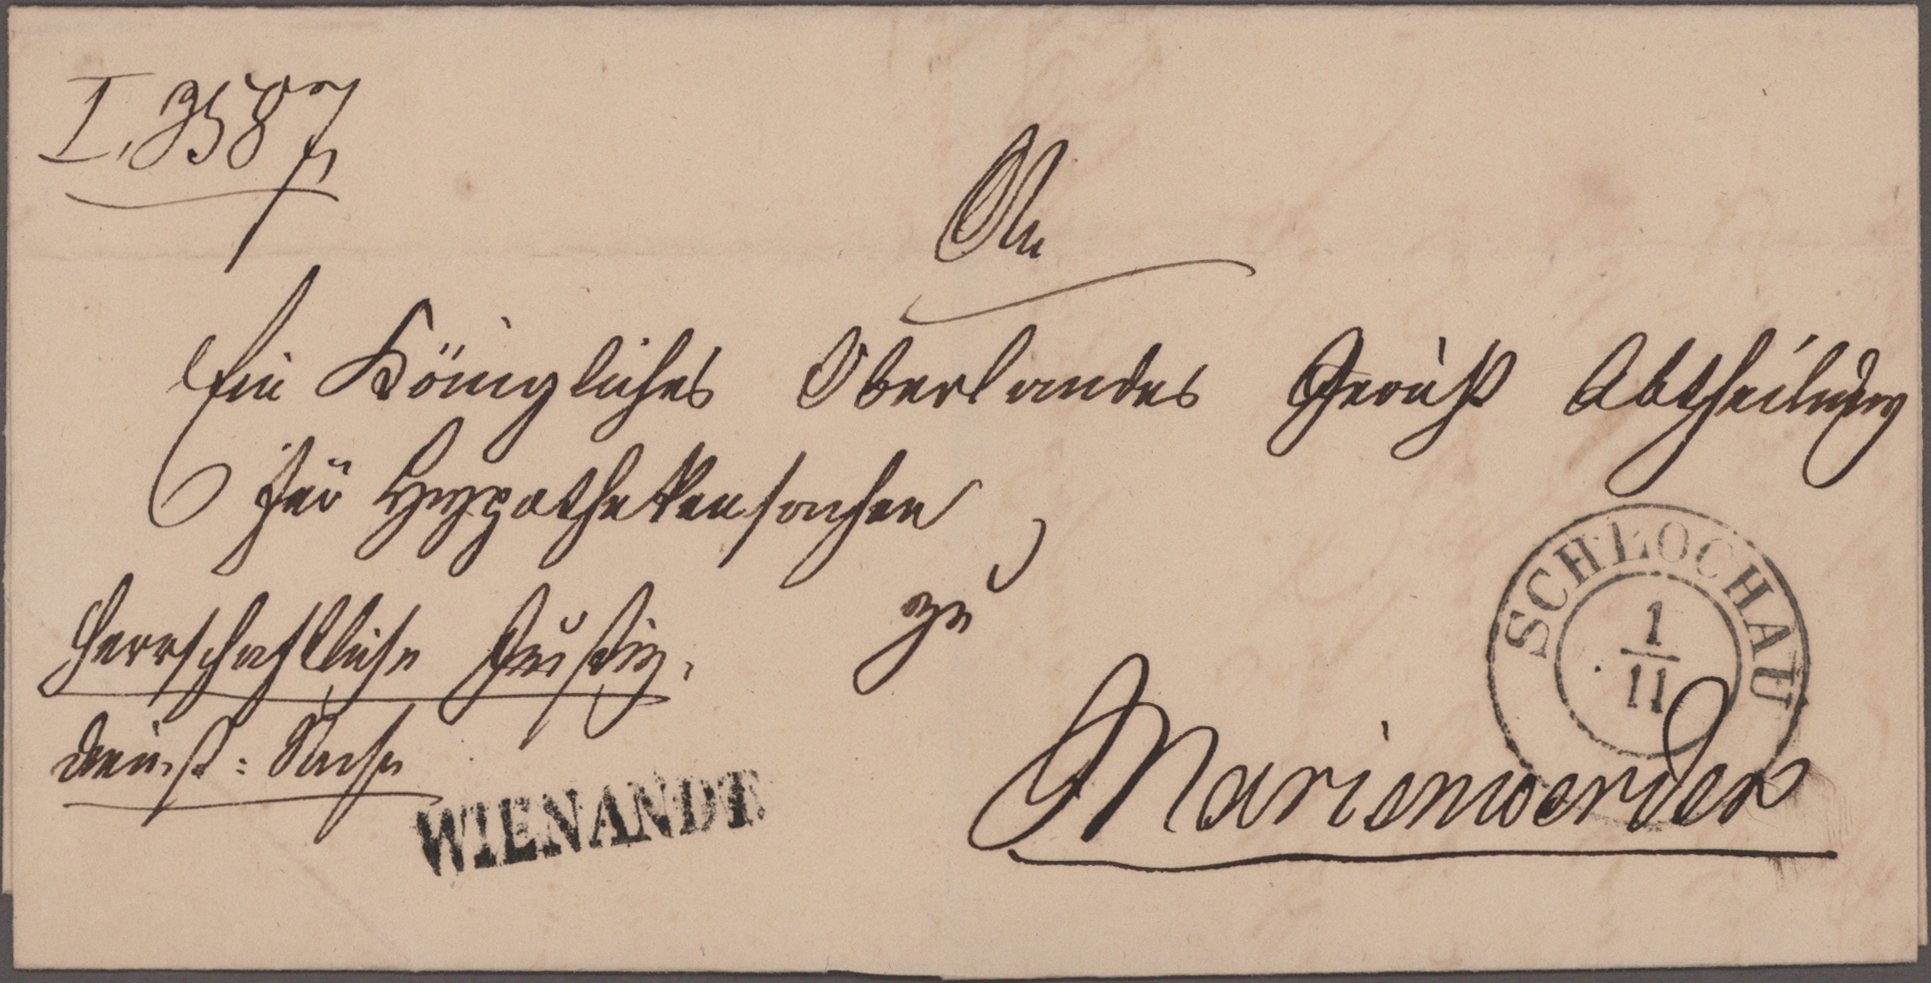 I. 3587
An
Ein Königliches Oberlandes Gericht Abtheilung
für Hypothekensachen
zu
Marienwerder
Herrschaftliche Justiz,
dienst: Sache
WIENANDT.
SCHLOCHAU
1
11